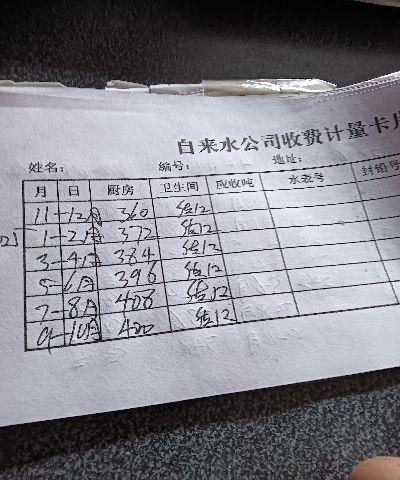 自来水公司收费计量卡片
姓名： 编号： 地址：
月 日 厨房 卫生间 应收吨 水表号 封铅号
11-12月 360 结12
1-2月 372 结12
3-4月 384 结12
5-6月 396 结12
7-8月 408 结12
9-10月 420 结12